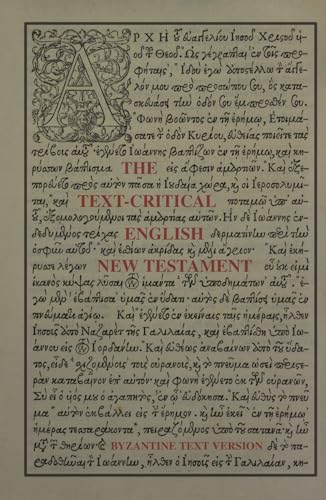 ΑΡΧΗ τοῦ εὐαγγελίου Ἰησοῦ Χριστοῦ υἱοῦ
τοῦ Θεοῦ. Ὡς γέγραπται ἐν τοῖς προ-
φήταις, Ἰδοὺ ἐγὼ ἀποστέλλω τὸν ἄγγε-
λόν μου πρὸ προσώπου σου, ὃς κατα-
σκευάσει τὴν ὁδόν σου ἔμπροσθέν σου.
Φωνὴ βοῶντος ἐν τῇ ἐρήμῳ, Ἑτοιμά-
σατε τὴν ὁδὸν Κυρίου, εὐθείας ποιεῖτε τὰς
τρίβους αὐτοῦ. ἐγένετο Ἰωάννης βαπτίζων ἐν τῇ ἐρήμῳ, καὶ κη-
ρύσσων βάπτισμα THE εἰς ἄφεσιν ἁμαρτιῶν. Καὶ ἐξε-
πορεύετο πρὸς αὐτὸν πᾶσα ἡ Ἰουδαία χώρα, καὶ οἱ Ἱεροσολυμῖ-
ται, καὶ TEXT-CRITICAL ποταμῷ ὑπ' αὐ-
τοῦ, ἐξομολογούμενοι τὰς ἁμαρτίας αὐτῶν. Ἦν δὲ Ἰωάννης ἐν-
δεδυμένος τρίχας ENGLISH δερματίνην περὶ τὴν
ὀσφὺν αὐτοῦ· καὶ ἐσθίων ἀκρίδας καὶ μέλι ἄγριον. Καὶ ἐκή-
ρυσσε λέγων NEW TESTAMENT οὗ οὐκ εἰμὶ
ἱκανὸς κύψας λῦσαι τὸν ἱμάντα τῶν ὑποδημάτων αὐτοῦ. ἐ-
γὼ μὲν ἐβάπτισα ὑμᾶς ἐν ὕδατι· αὐτὸς δὲ βαπτίσει ὑμᾶς ἐν
πνεύματι ἁγίῳ. Καὶ ἐγένετο ἐν ἐκείναις ταῖς ἡμέραις, ἦλθεν
Ἰησοῦς ἀπὸ Ναζαρὲτ τῆς Γαλιλαίας, καὶ ἐβαπτίσθη ὑπὸ Ἰω-
άννου εἰς τὸν Ἰορδάνην. Καὶ εὐθέως ἀναβαίνων ἀπὸ τοῦ ὕδα-
τος, εἶδε σχιζομένους τοὺς οὐρανοὺς, καὶ τὸ πνεῦμα ὡσεὶ περιστε-
ρὰν καταβαῖνον ἐπ' αὐτόν· καὶ φωνὴ ἐγένετο ἐκ τῶν οὐρανῶν,
Σὺ εἶ ὁ υἱός μου ὁ ἀγαπητὸς, ἐν ᾧ εὐδόκησα. Καὶ εὐθὺς τὸ πνεῦ-
μα αὐτὸν ἐκβάλλει εἰς τὴν ἔρημον. καὶ ἦν ἐκεῖ ἐν τῇ ἐρήμῳ
ἡμέρας τεσσαράκοντα, πειραζόμενος ὑπὸ τοῦ σατανᾶ· καὶ ἦν
μετὰ τῶν θηρίων BYZANTINE TEXT VERSION δὲ τὸ πα-
ραδοθῆναι τὸν Ἰωάννην, ἦλθεν ὁ Ἰησοῦς εἰς τὴν Γαλιλαίαν, κη-